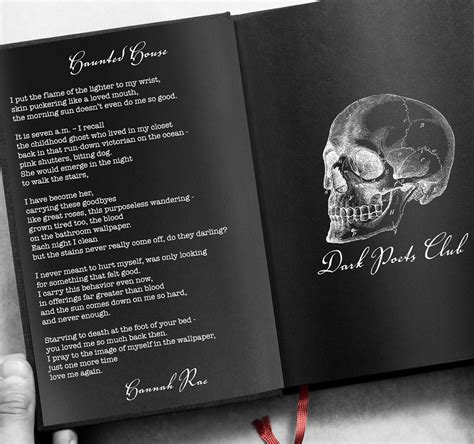 Haunted House
I put the flame of the lighter to my wrist,
skin puckering like a loved mouth,
the morning sun doesn't even do me so good.
It is seven a.m. – I recall
the childhood ghost who lived in my closet
back in that run-down victorian on the ocean -
pink shutters, biting dog.
She would emerge in the night
to walk the stairs,
I have become her,
carrying these goodbyes
like great roses, this purposeless wandering -
grown tired too, the blood
on the bathroom wallpaper.
Each night I clean
but the stains never really come off, do they darling?
I never meant to hurt myself, was only looking
for something that felt good.
I carry this behavior even now,
in offerings far greater than blood
and the sun comes down on me so hard,
and never enough.
Starving to death at the foot of your bed -
you loved me so much back then.
I pray to the image of myself in the wallpaper,
just one more time
love me again.
Hannah Rae
Dark Poets Club